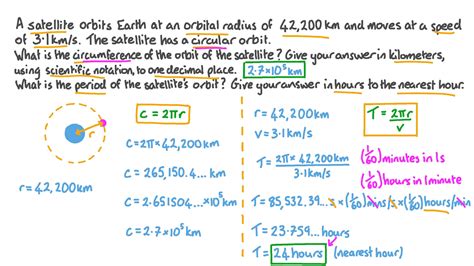 A satellite orbits Earth at an orbital radius of 42,200 km and moves at a speed
of 3.1 km/s. The satellite has a circular orbit.
What is the circumference of the orbit of the satellite? Give your answer in kilometers,
using scientific notation, to one decimal place. 2.7×10⁵ km
What is the period of the satellite's orbit? Give your answer in hours to the nearest hour.
r
r = 42,200km
c = 2πr
c = 2π × 42,200km
c = 265,150.4... km
c = 2.651504... ×10⁵ km
c = 2.7×10⁵ km
r = 42,200km
v = 3.1 km/s
T = 2πr/v
T = 2π × 42,200km/3.1km/s
(1/60) minutes in 1s
(1/60) hours in 1minute
T = 85,532.39... s × (1/60) mins/s × (1/60) hours/min
T = 23.759... hours
T = 24 hours (nearest hour)